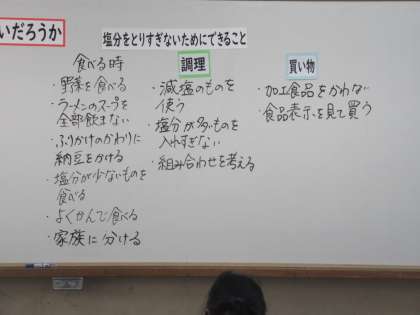 いだろうか
塩分をとりすぎないためにできること
食べる時
・野菜を食べる
・ラーメンのスープを
全部飲まない
・ふりかけのかわりに
納豆をかける
・塩分が少ないものを
食べる
・よくかんで食べる
・家族に分ける
調理
・減塩のものを
使う
・塩分が多いものを
入れすぎない
・組み合わせを考える
買い物
・加工食品をかわない
・食品表示を見て買う